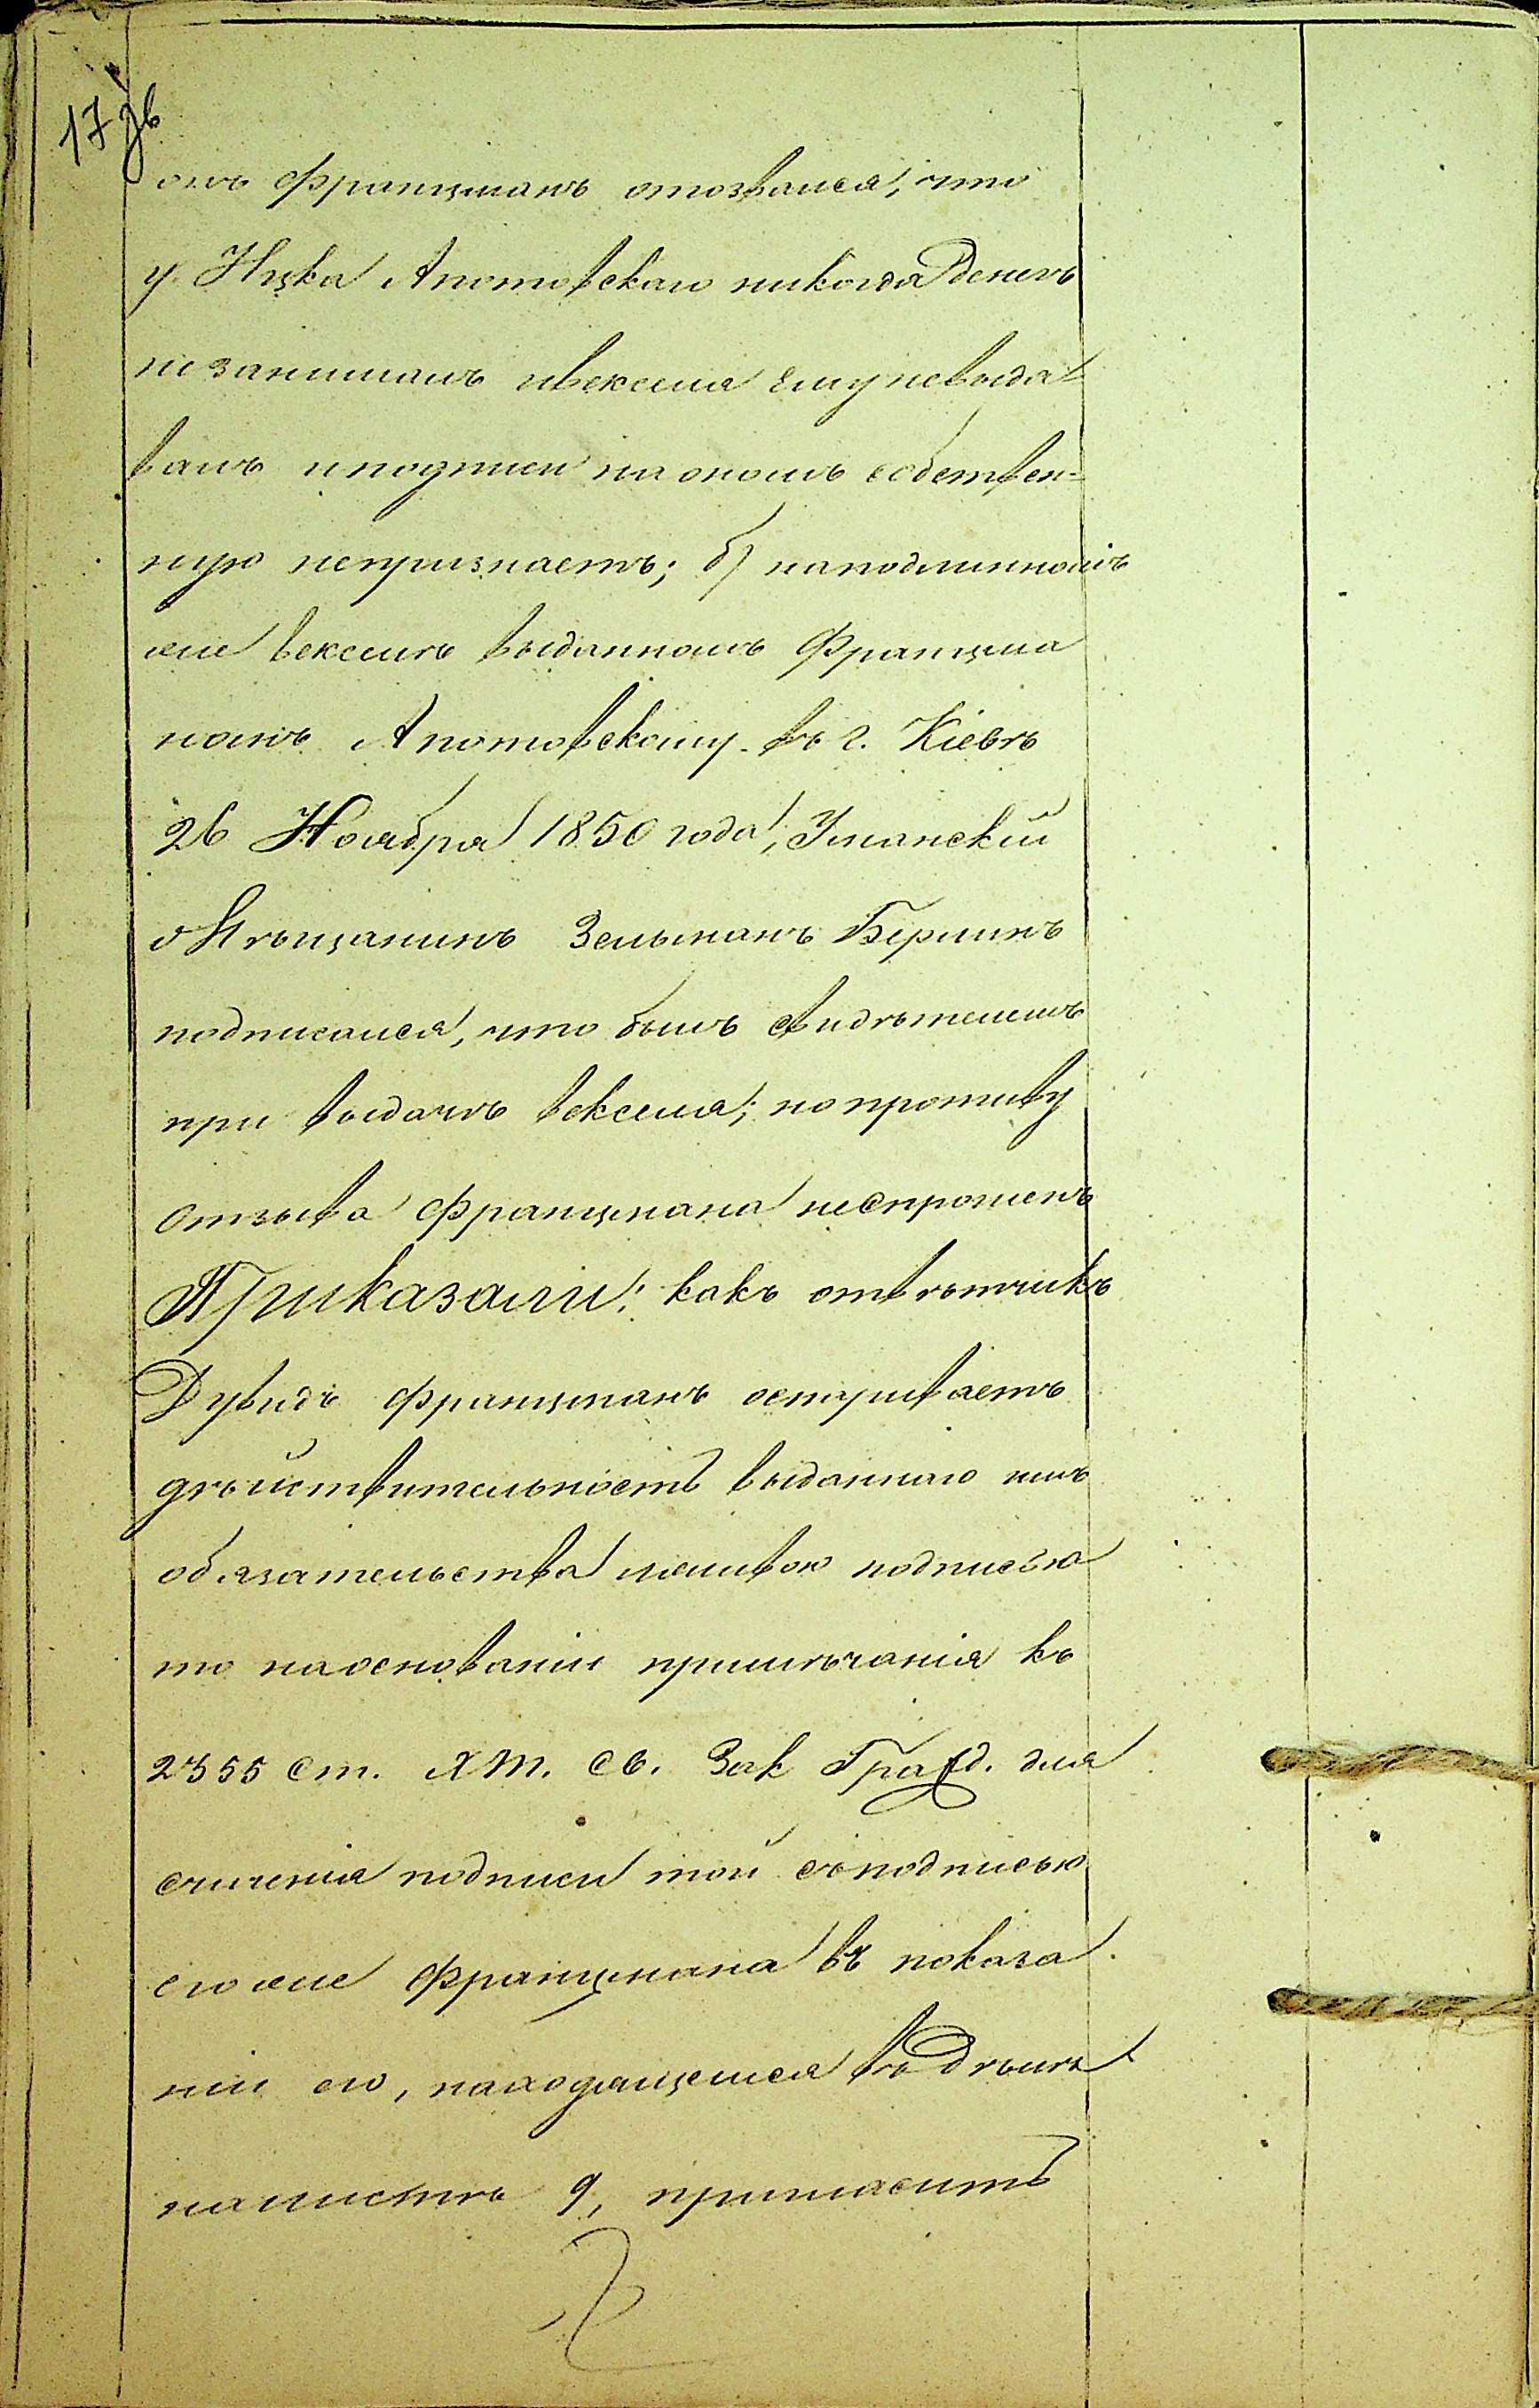 17 зв
онъ Францманъ отозвался, что
у Ицка Апотовскаго никогда денегъ
не занималъ ивекселя ему невыда-
валъ иподписи на ономъ собствен-
ную непризнаетъ; б) наподлинномъ
же векселѣ выданномъ Францма
номъ Апотовскому въ г. Кіевѣ
26 Ноября 1850 года, Уманскій
Мѣщанинъ Зельманъ Берлинъ
подписался, что былъ свидѣтелемъ
при выдачѣ векселя; но противу
отзыва Францмана неспрошенъ
Приказали: какъ отвѣтчикъ
Дувидъ Францманъ оспуриваетъ
дѣйствительность выданнаго имъ
обязательства лживою подписью
то наоснованіи примѣчанія къ
2355 ст. Х т. св. Зак Гражд. для
сличенія подписи той съподписью
его же Францмана въ показа
ніи его, находящемся въ дѣлѣ
налистѣ 9, пригласить